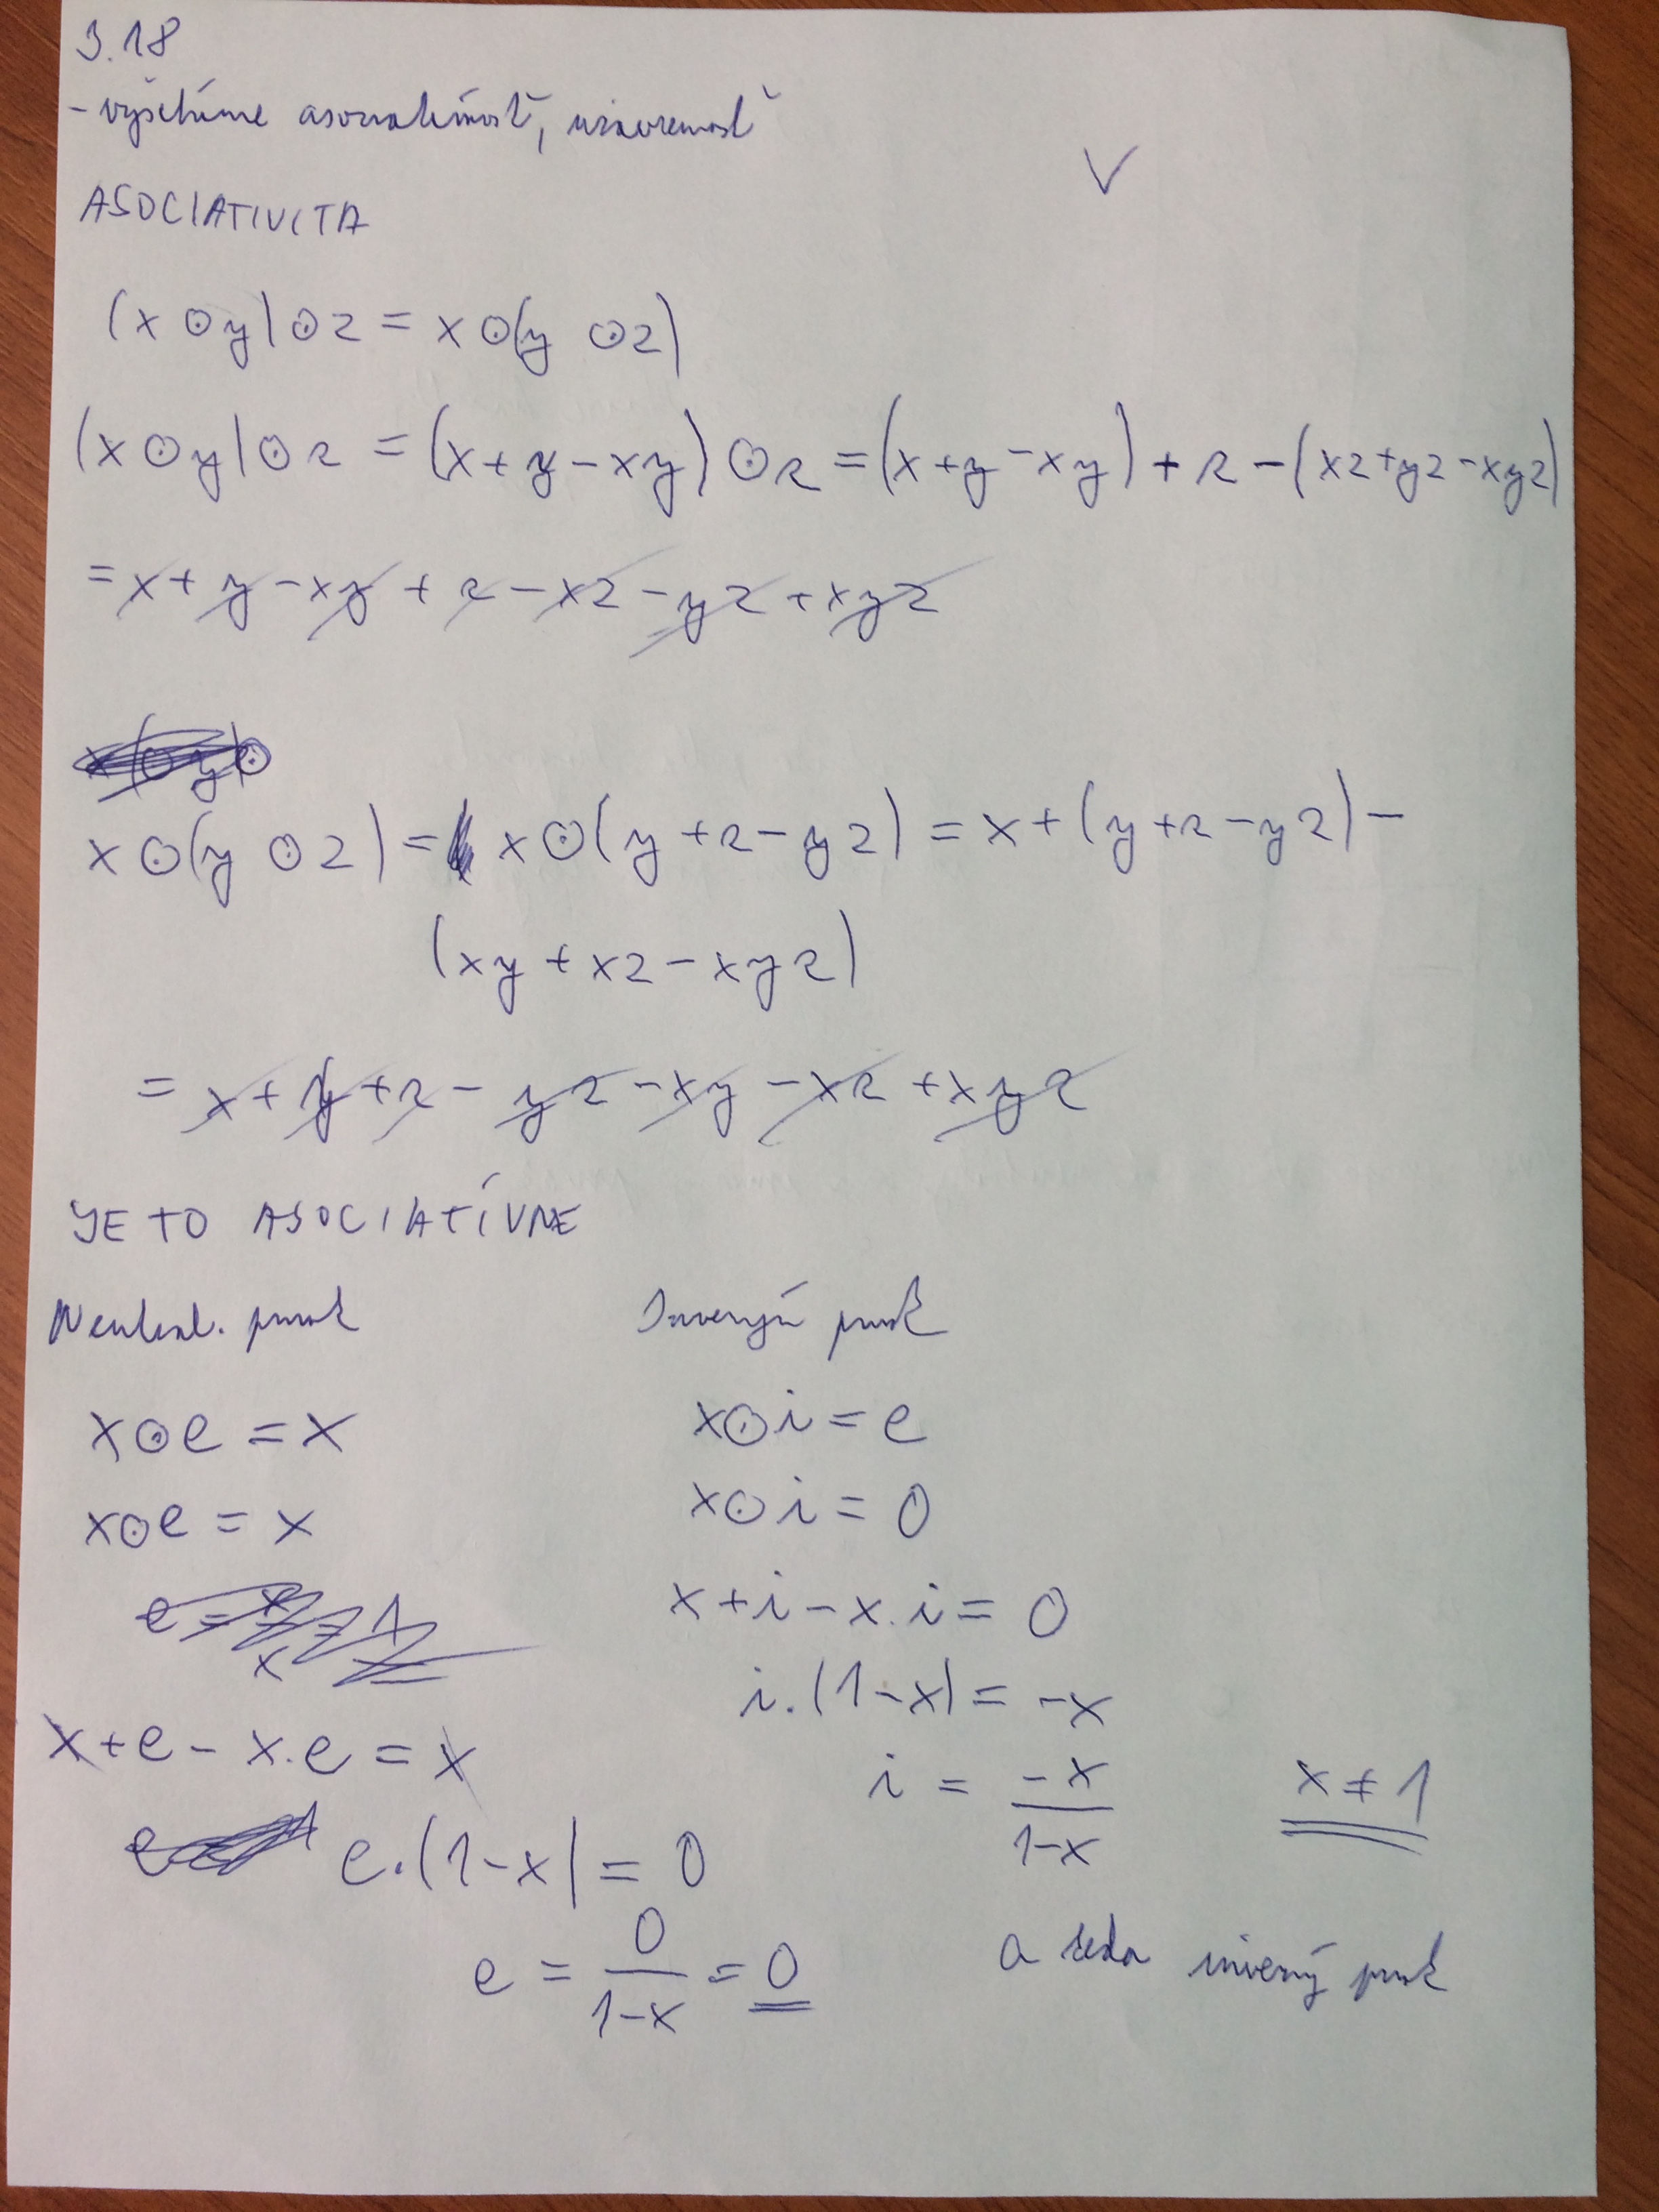 3.18
- vyšetríme asociatívnosť, uzavretosť
V
ASOCIATIVITA
(x ⊙ y) ⊙ z = x ⊙ (y ⊙ z)
(x ⊙ y) ⊙ z = (x + y - xy) ⊙ z = (x + y - xy) + z - (xz + yz - xyz)
= x + y - xy + z - xz - yz + xyz
x ⊙ (y ⊙ z) = x ⊙ (y + z - yz) = x + (y + z - yz) -
(xy + xz - xyz)
= x + y + z - yz - xy - xz + xyz
JE TO ASOCIATÍVNE
Neutral. prvok
x ⊙ e = x
x ⊙ e = x
e = x/x = 1
x + e - x.e = x
e.(1-x) = 0
e = 0/(1-x) = 0
Inverzný prvok
x ⊙ i = e
x ⊙ i = 0
x + i - x.i = 0
i.(1-x) = -x
i = -x/(1-x)
x ≠ 1
a teda inverzný prvok